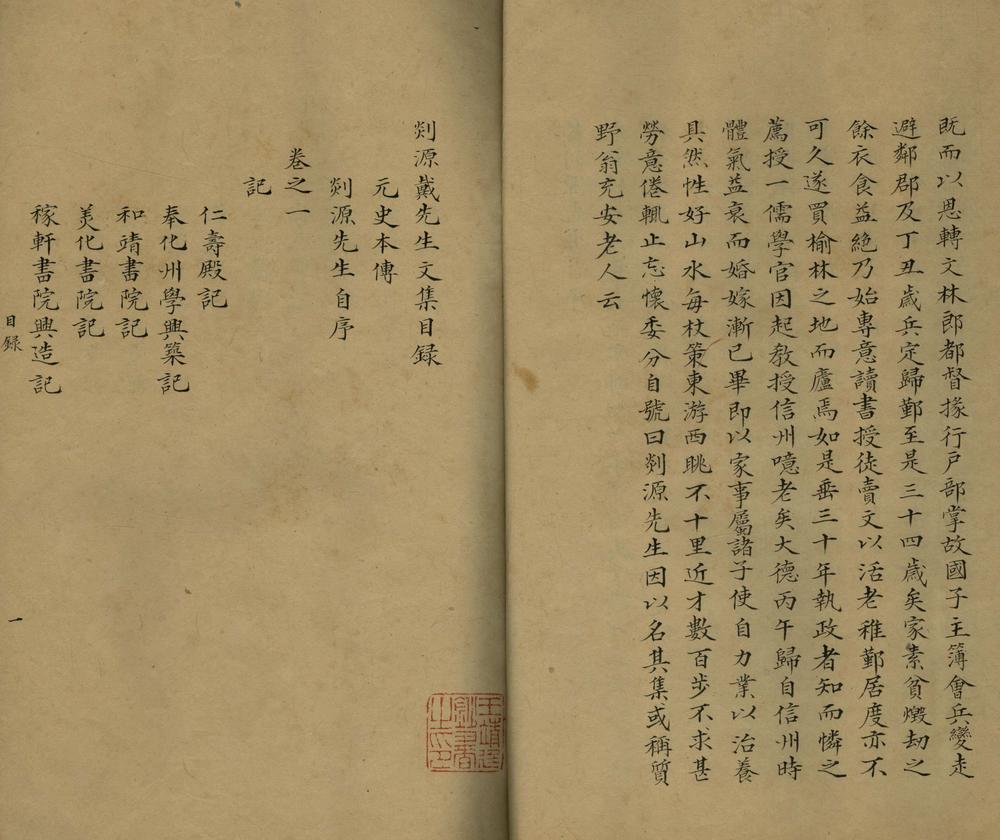 既而以恩轉文林郎都督掾行戶部掌故國子主簿會兵變走
避鄰郡及丁丑歲兵定歸鄞至是三十四歲矣家素貧燬劫之
餘衣食益絶乃始專意讀書授徒賣文以活老稚鄞居度亦不
可久遂買榆林之地而廬焉如是垂三十年執政者知而憐之
薦授一儒學官因起教授信州噫老矣大德丙午歸自信州時
體氣益衰而婚嫁漸已畢即以家事屬諸子使自力業以治養
具然性好山水每杖策東游西眺不十里近才數百步不求甚
勞意倦輒止忘懷委分自號曰剡源先生因以名其集或稱質
野翁充安老人云
剡源戴先生文集目録
元史本傳
剡源先生自序
卷之一
記
仁壽殿記
奉化州學興築記
和靖書院記
美化書院記
稼軒書院興造記
目録
一